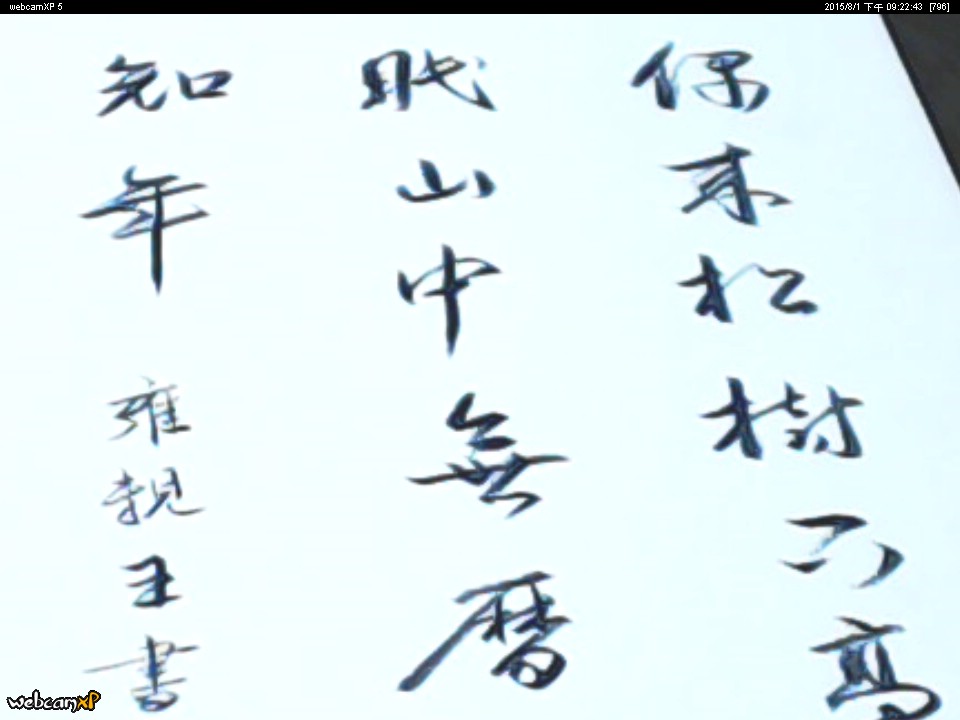 webcamXP 5
2015/8/1 下午 09:22:43 [796]
偶来松樹下高
眠山中無曆
知年
雍親王書
webcamXP